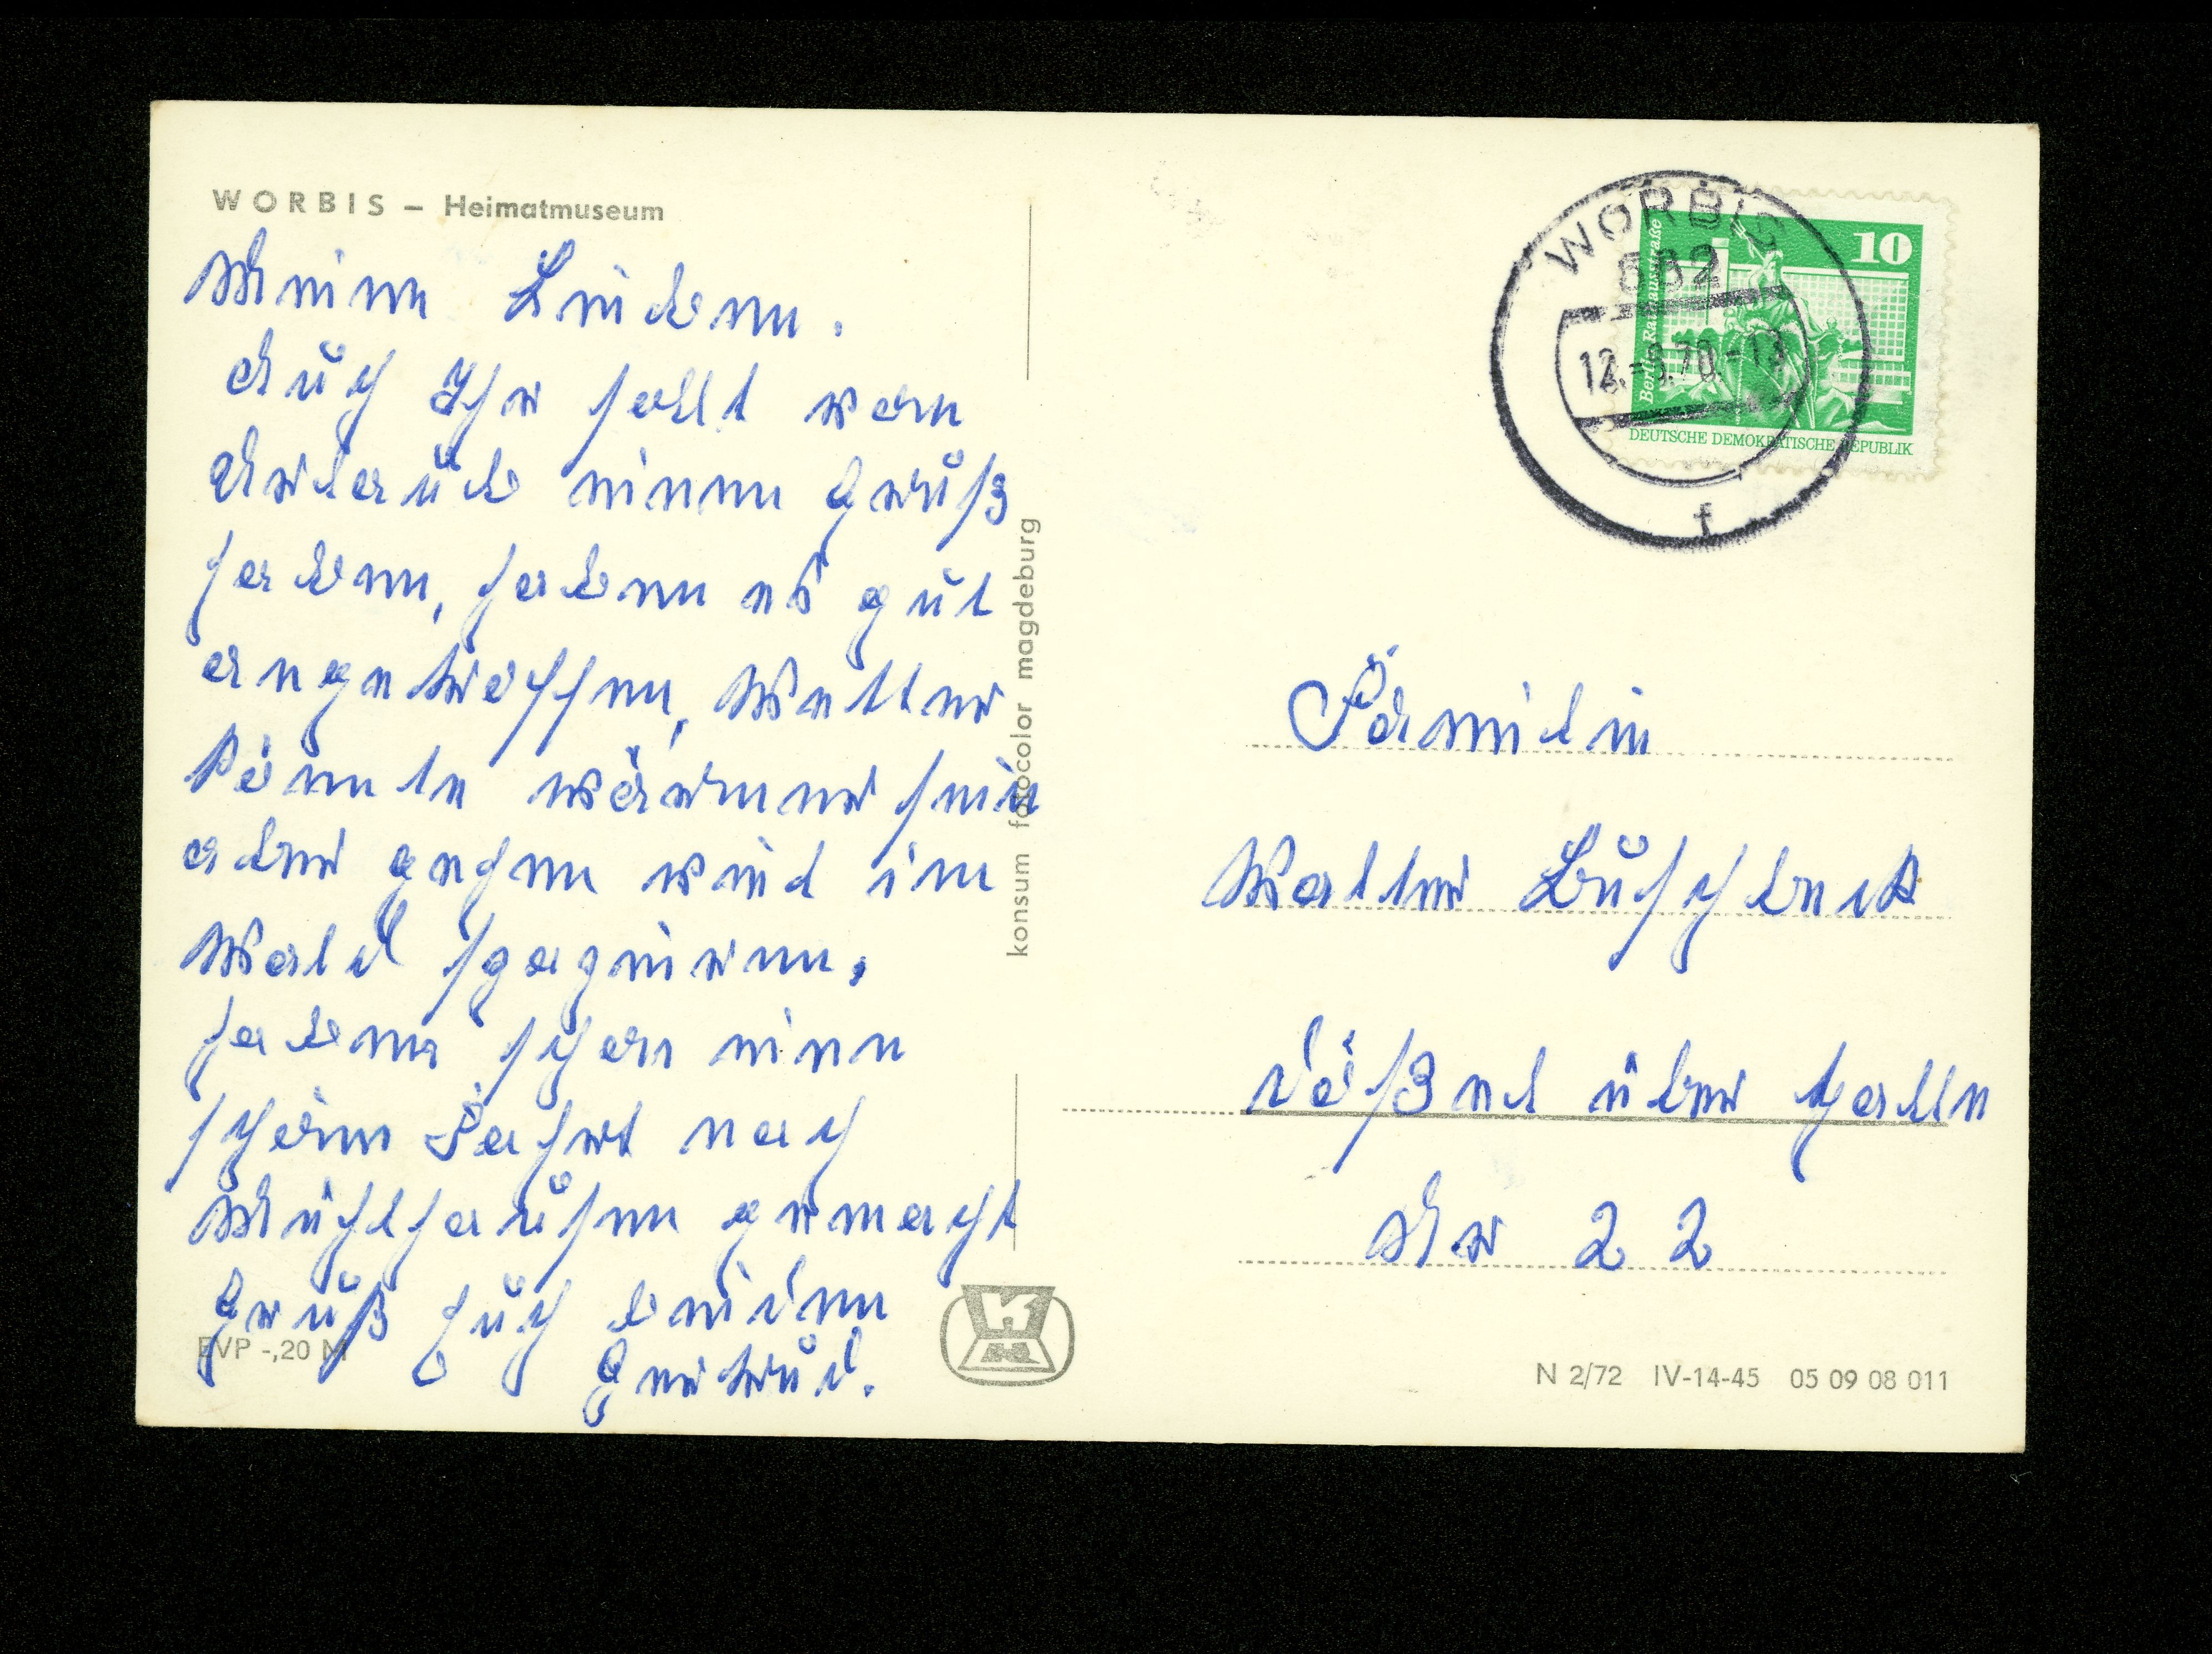 WORBIS – Heimatmuseum
Meine Lieben.
Auch Ihr sollt vom
Urlaub einen Gruß
haben, haben es gut
angetroffen, Wetter
könnte wärmer sein
aber gehen viel im
Wald spazieren.
haben schon eine
schöne Fahrt nach
Mühlhausen gemacht
Gruß Euch beiden
Gertrud.
EVP -,20 M
konsum fotocolor magdeburg
WORBIS
10
Berlin, Rathausstraße
DEUTSCHE DEMOKRATISCHE REPUBLIK
f
Familie
Walter Buschbeck
Dößel über Halle
Nr 22
N 2/72 IV-14-45 05 09 08 011